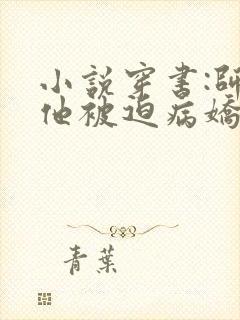 小說穿書:師
他被迫病嬌
青葉